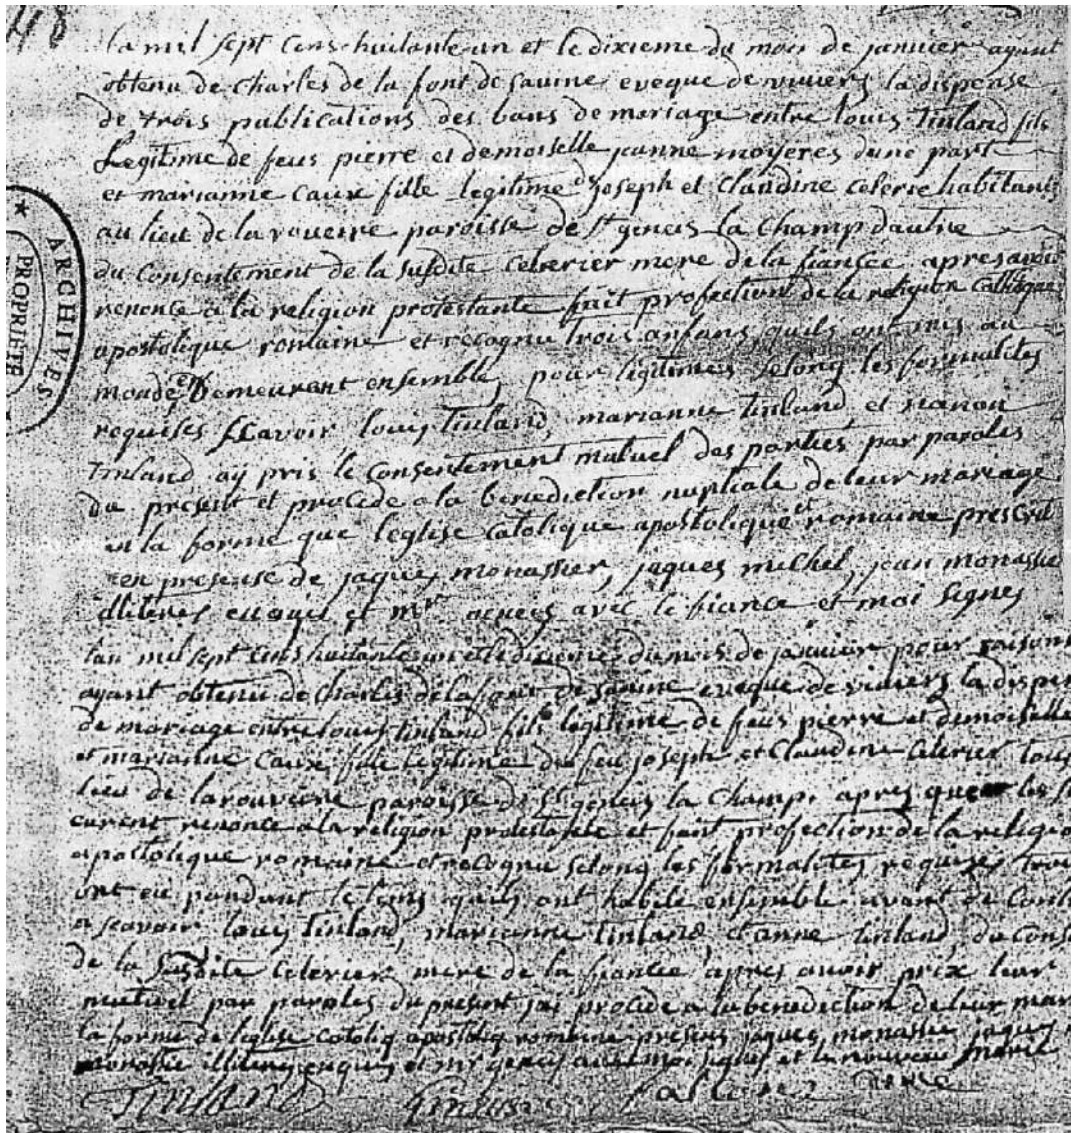 48
lan mil sept cens huitante un et le dixieme du mois de janvier ayant
obtenu de Charles de la font de savine eveque de viviers la dispense
de trois publications des bans de mariage entre louis Tinland fils
Legitime de feus pierre et demoiselle jeanne moyeres dune part
et marianne Caux fille legitime de joseph et Claudine Celerie habitant
au lieu de la roueirre paroisse de st geneis la Champ dautre
du Consentement de la susdite Celerier mere de la fiancée apres avoir
renoncé a la religion protestante fait profection de la religion Catholique
apostolique romaine et recognu trois enfans quils ont mis au
monde en Demeurant ensemble pour legitimes selong les formalites
requises sçavoir louis Tinland, marianne Tinland et nanon
Tinland aÿ pris le Consentement mutuel des parties par paroles
du present et procédé a la benediction nuptiale de leur mariage
en la forme que leglise Catolique apostolique et romaine prescrit
en presense de jaques monassier, jaques michel, jean monassie
illiteres enquis et mre avec le fiance et moi signes
lan mil sept cens huitante un et le dixieme du mois de janvier pour
ayant obtenu de Charles de la font de savine eveque de viviers la dispen
de mariage entre louis Tinland fils legitime de feus pierre et demoiselle
et marianne Caux fille legitime du feu joseph et Claudine Celerier tous
lieu de larouviere paroisse de st geneis la Champ, apres que les
eurent renoncé a la religion protestante et faint profection de la religio
apostolique romaine et recognu selong les formalites requises trois
ont eu pandant le tems quils ont habité ensemble avant de
a scavoir louis Tinland, marianne Tinland, et anne Tinland, du Conse
de la susdite Celerier mere de la fiancée apres avoir prix leur
mutuel par paroles du present jai procédé a la benediction de leur mari
la forme de leglise Catoliq apostoliq romaine presens jaques monassie jaques
monassie illiteres enquis et moi signes et le nouveau marié
Tinland
★ ARCHIVES
PROPRIÉTÉ